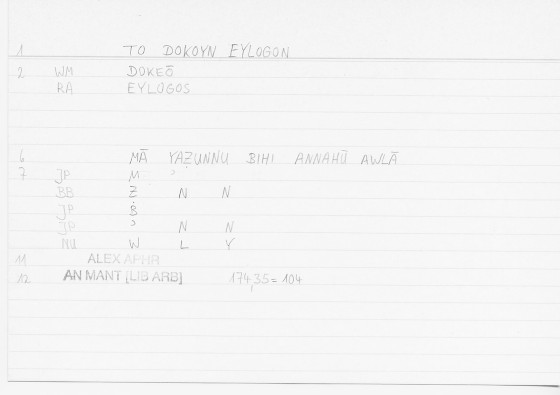 1 TO DOKOYN EYLOGON
2 WM DOKEŌ
RA EYLOGOS
6 MĀ YAẒUNNU BIHI ANNAHŪ AWLĀ
7 JP M ʾ
BB Ẓ N N
JP Ḃ
JP ʾ N N
NU W L Y
11 ALEX APHR
12 AN MANT [LIB ARB] 174,35 = 104